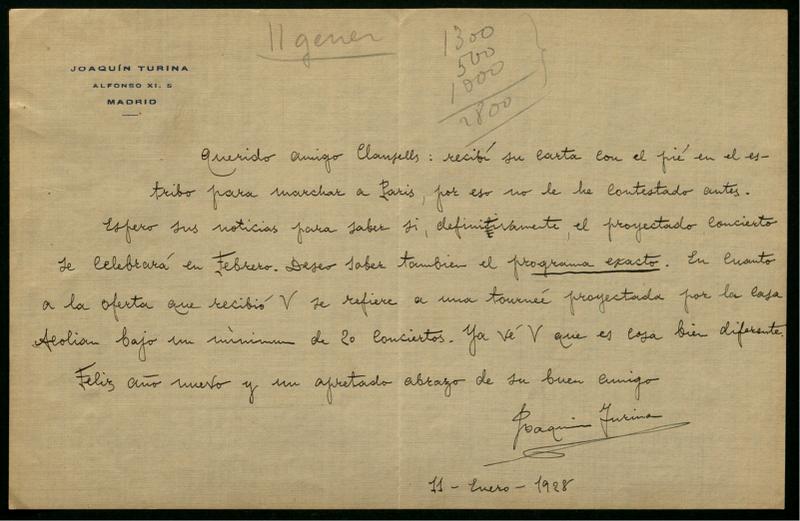 11 gener
1300
500
1000
2800
JOAQUÍN TURINA
ALFONSO XI, 5
MADRID
Querido amigo Clausells: recibí su carta con el pié en el es-
tribo para marchar a Paris, por eso no le he contestado antes.
Espero sus noticias para saber si, definitivamente, el proyectado concierto
se celebrará en Febrero. Deseo saber tambien el programa exacto. En cuanto
a la oferta que recibió V se refiere a una tourneé proyectada por la casa
Aeolian bajo un mínimum de 20 conciertos. Ya vé V que es cosa bien diferente.
Feliz año nuevo y un apretado abrazo de su buen amigo
Joaquin Turina
11 - Enero - 1928